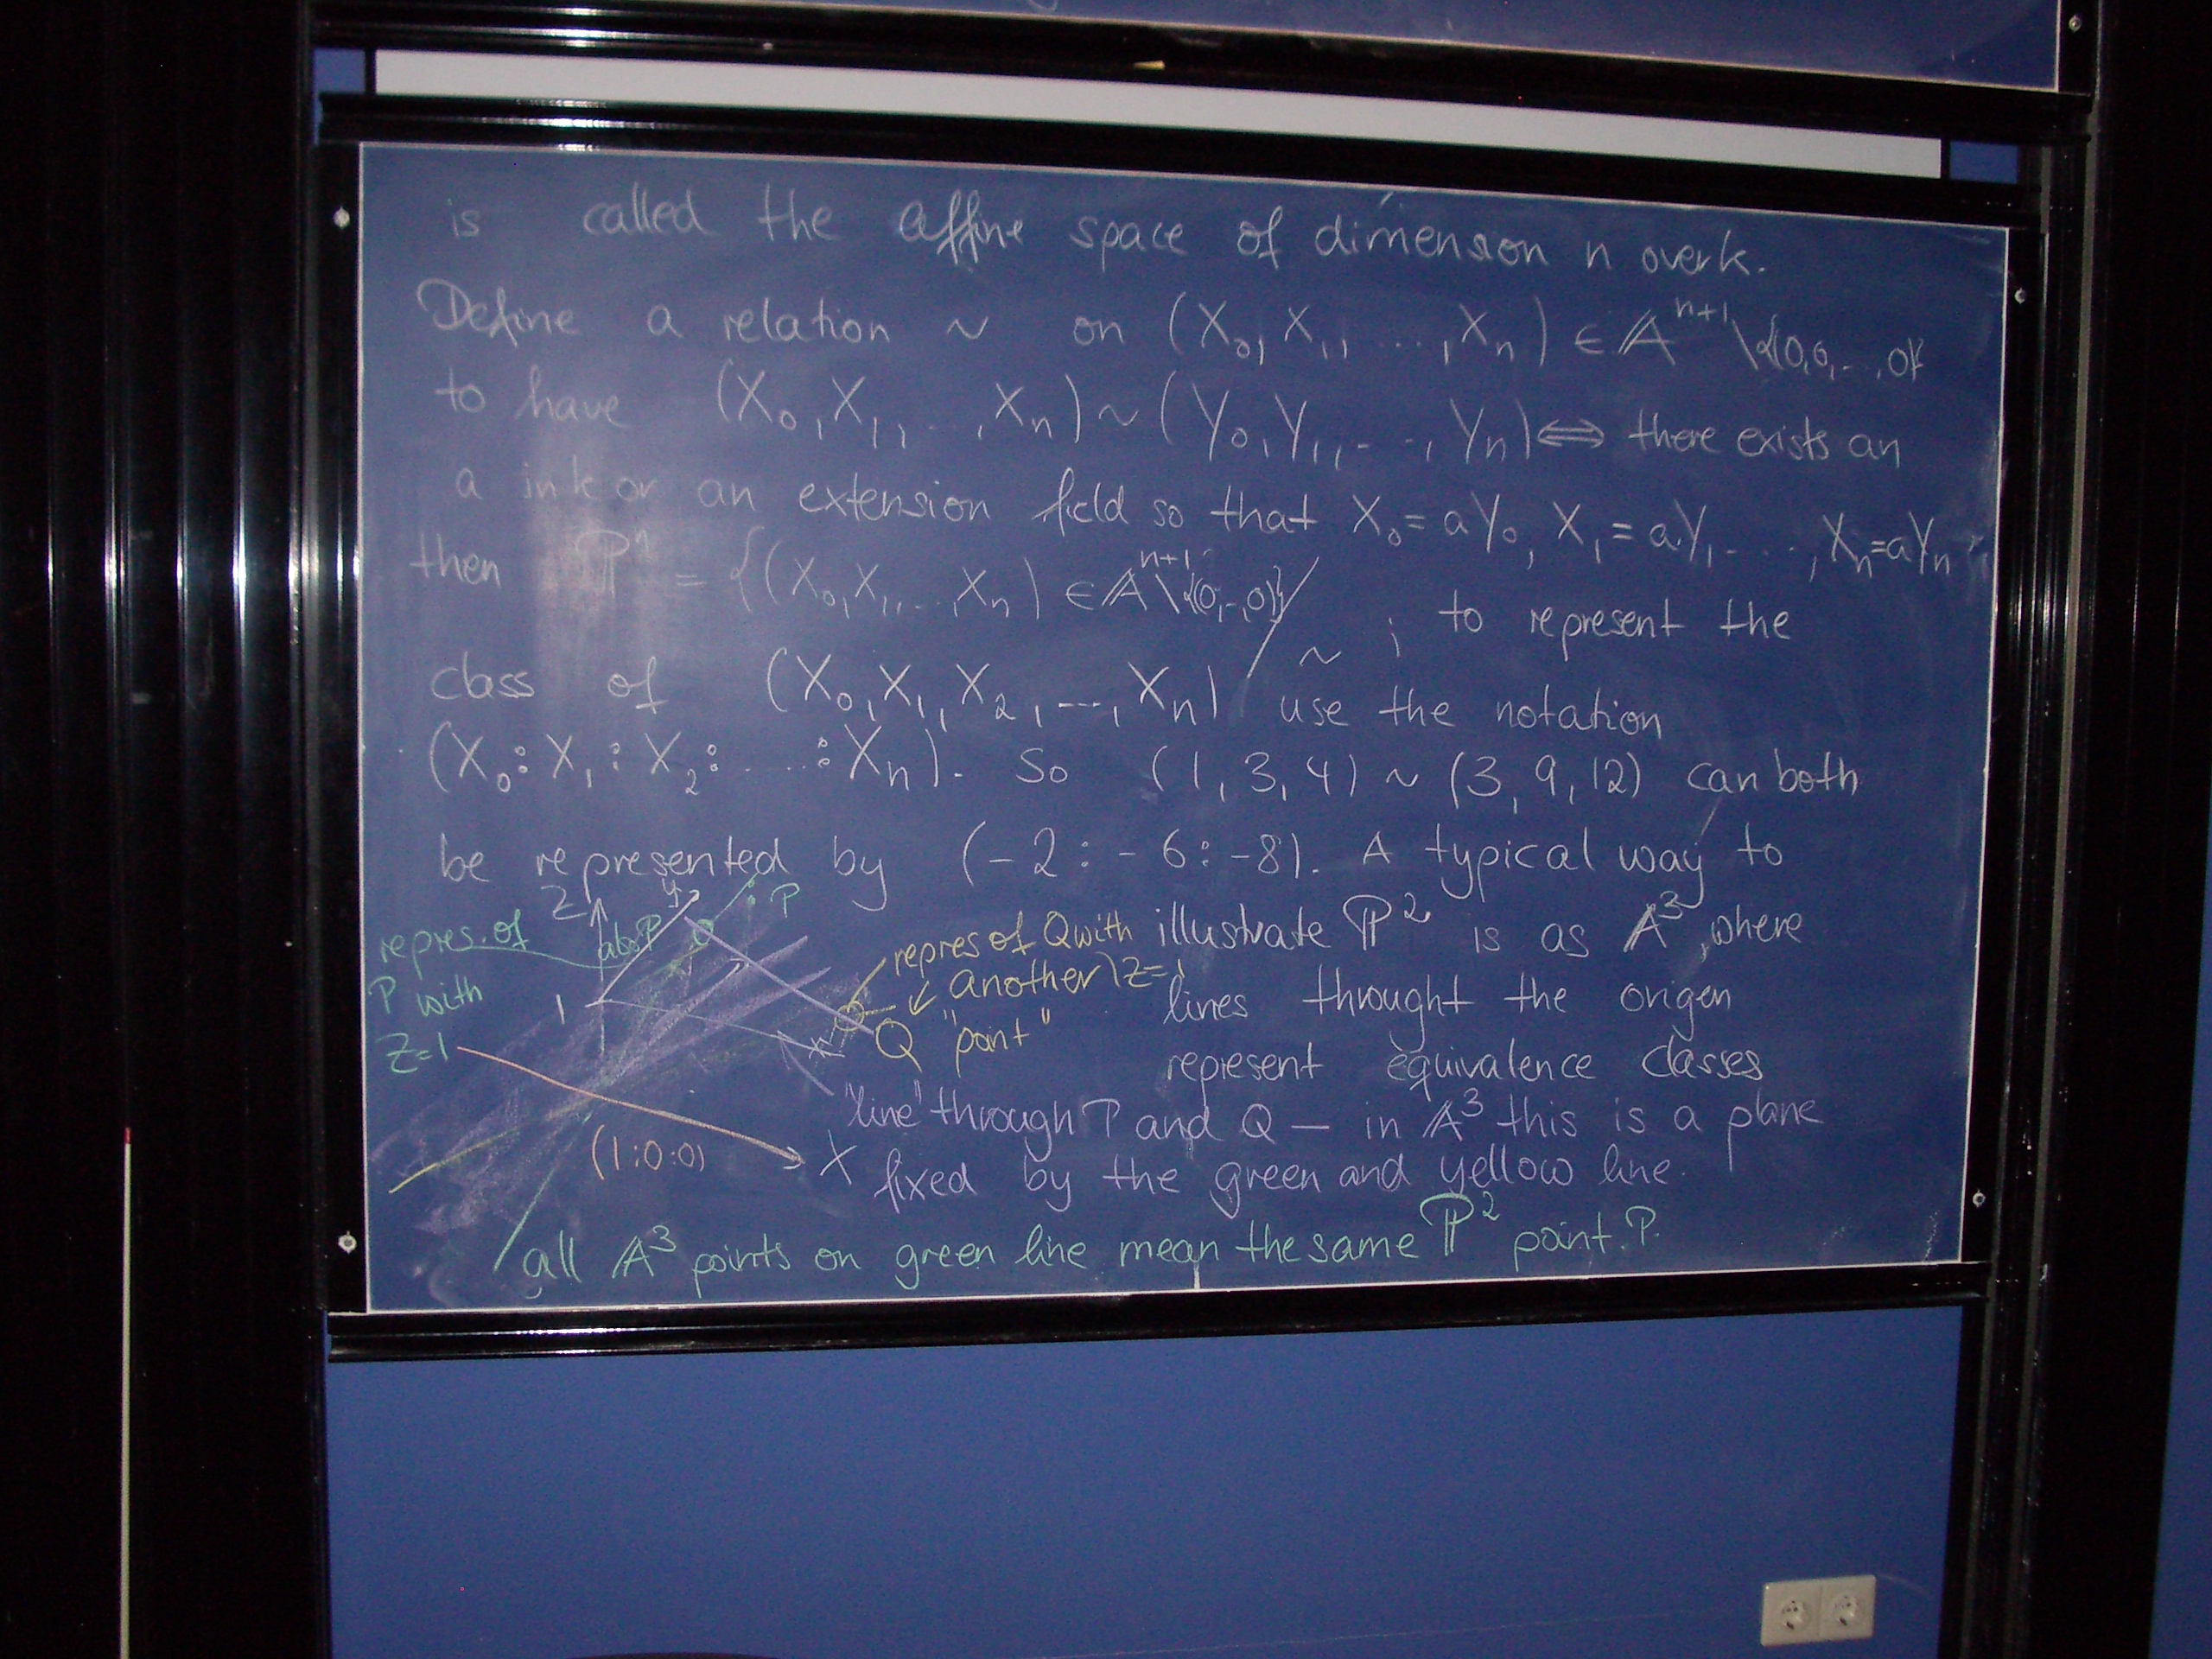 is called the affine space of dimension n over k.
Define a relation ~ on (X₀, X₁, ..., Xₙ) ∈ 𝔸ⁿ⁺¹ \ {(0,0,...,0)}
to have (X₀, X₁, ..., Xₙ) ~ (Y₀, Y₁, ..., Yₙ) ⇔ there exists an
a in k or an extension field so that X₀ = aY₀, X₁ = aY₁ ..., Xₙ = aYₙ
then ℙⁿ = {(X₀, X₁, ..., Xₙ) ∈ 𝔸ⁿ⁺¹ \ {(0,..,0)} / ~ ; to represent the
class of (X₀, X₁, X₂, ..., Xₙ) use the notation
(X₀ : X₁ : X₂ : .... : Xₙ). So (1, 3, 4) ~ (3, 9, 12) can both
be represented by (-2 : -6 : -8). A typical way to
illustrate ℙ² is as 𝔸³, where
lines throught the origen
represent equivalence classes
Z
y
P
repres. of
P with
Z=1
1
x
repres of Q with
another Z=1
Q "point"
"line" through P and Q — in 𝔸³ this is a plane
fixed by the green and yellow line.
(1:0:0)
X
all 𝔸³ points on green line mean the same ℙ² point P.